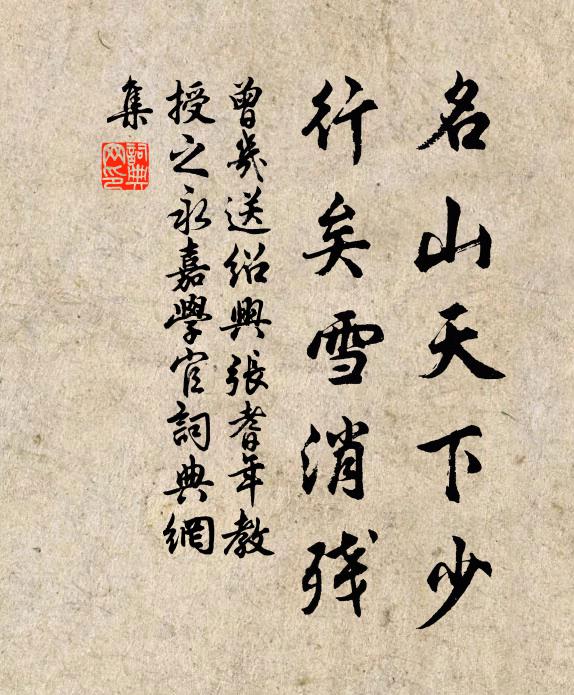 名山天下少
行矣雪消残
曾幾送紹興張耆年教
授之永嘉學官詞典網
集
詞典網印